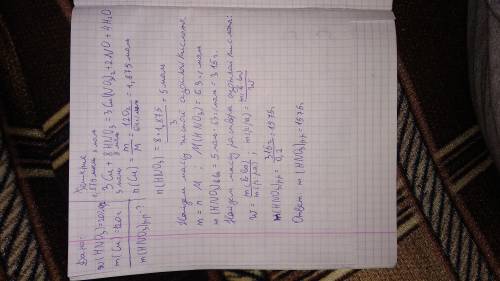 Дано:
w(HNO3)=20%
m(Cu)=120г
m(HNO3)р.р-?
1,875 моль х моль
3Cu + 8HNO3 = 3Cu(NO3)2 + 2NO + 4H2O
3 моль 8 моль
n(Cu) = m/M = 120г/64г/моль = 1,875 моль
n(HNO3) = 8·1,875/3 = 5 моль
Найдем массу чистой азотной кислоты
m = n·M ; M(HNO3) = 63 г/моль
m(HNO3) = 5 моль·63г/моль = 315г.
Найдем массу раствора азотной кислоты:
W = m(в-ва)/m(р-ра) ; m(р-ра) = m(в-ва)/W
m(HNO3)р.р = 315г/0,2 = 1575г.
Ответ: m(HNO3)р.р = 1575г.